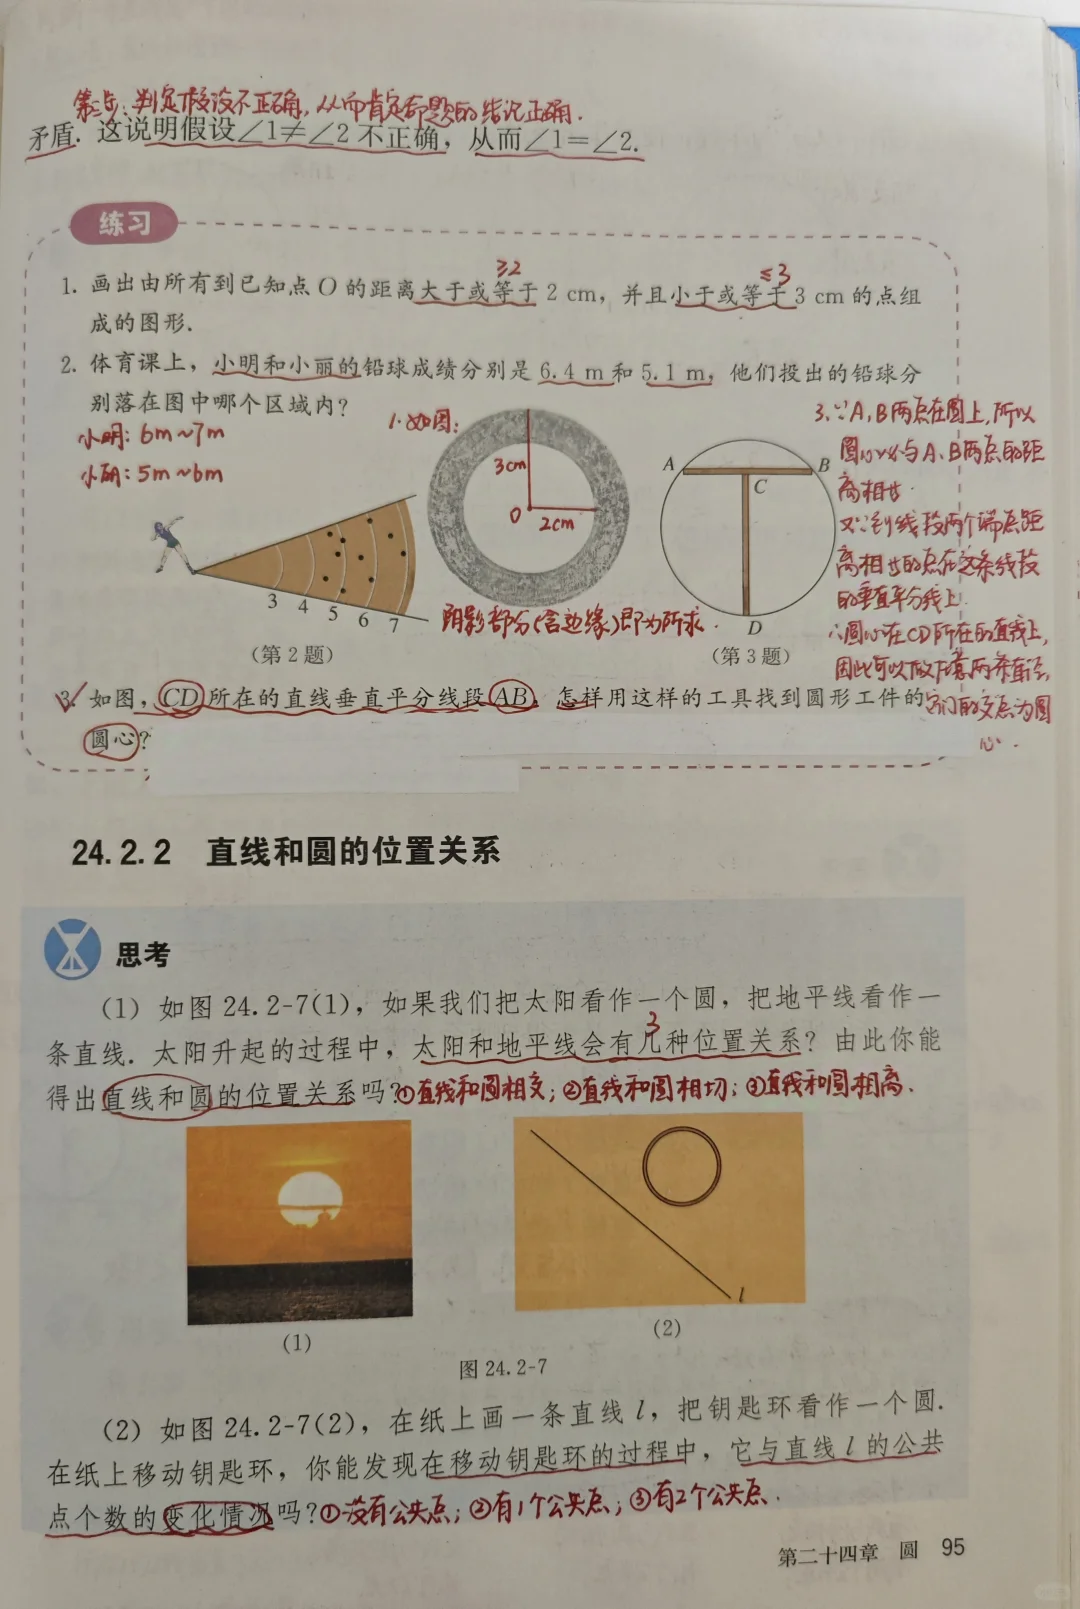 第三步:判定假设不正确,从而肯定命题的结论正确.
矛盾. 这说明假设∠1≠∠2不正确,从而∠1=∠2.
练习
≥2
≤3
1. 画出由所有到已知点O的距离大于或等于2 cm,并且小于或等于3 cm的点组
成的图形.
2. 体育课上,小明和小丽的铅球成绩分别是6.4 m和5.1 m,他们投出的铅球分
别落在图中哪个区域内?
小明: 6m~7m
小丽: 5m~6m
1.如图:
3cm
O
2cm
阴影部分(含边缘)即为所求.
3 4 5 6 7
(第2题)
A
B
C
D
(第3题)
3.∵A,B两点在圆上,所以
圆心必与A、B两点的距
离相等.
又∵到线段两个端点距
离相等的点在这条线段
的垂直平分线上.
∴圆心在CD所在的直线上,
因此可以做任意两条直径,
它们的交点为圆
心.
3. 如图,CD所在的直线垂直平分线段AB. 怎样用这样的工具找到圆形工件的
圆心?
24.2.2 直线和圆的位置关系
思考
(1) 如图24.2-7(1),如果我们把太阳看作一个圆,把地平线看作一
3
条直线. 太阳升起的过程中,太阳和地平线会有几种位置关系?由此你能
得出直线和圆的位置关系吗?①直线和圆相交;②直线和圆相切;③直线和圆相离.
l
(1)
(2)
图24.2-7
(2) 如图24.2-7(2),在纸上画一条直线l,把钥匙环看作一个圆.
在纸上移动钥匙环,你能发现在移动钥匙环的过程中,它与直线l的公共
点个数的变化情况吗?①没有公共点;②有1个公共点;③有2个公共点.
第二十四章 圆 95